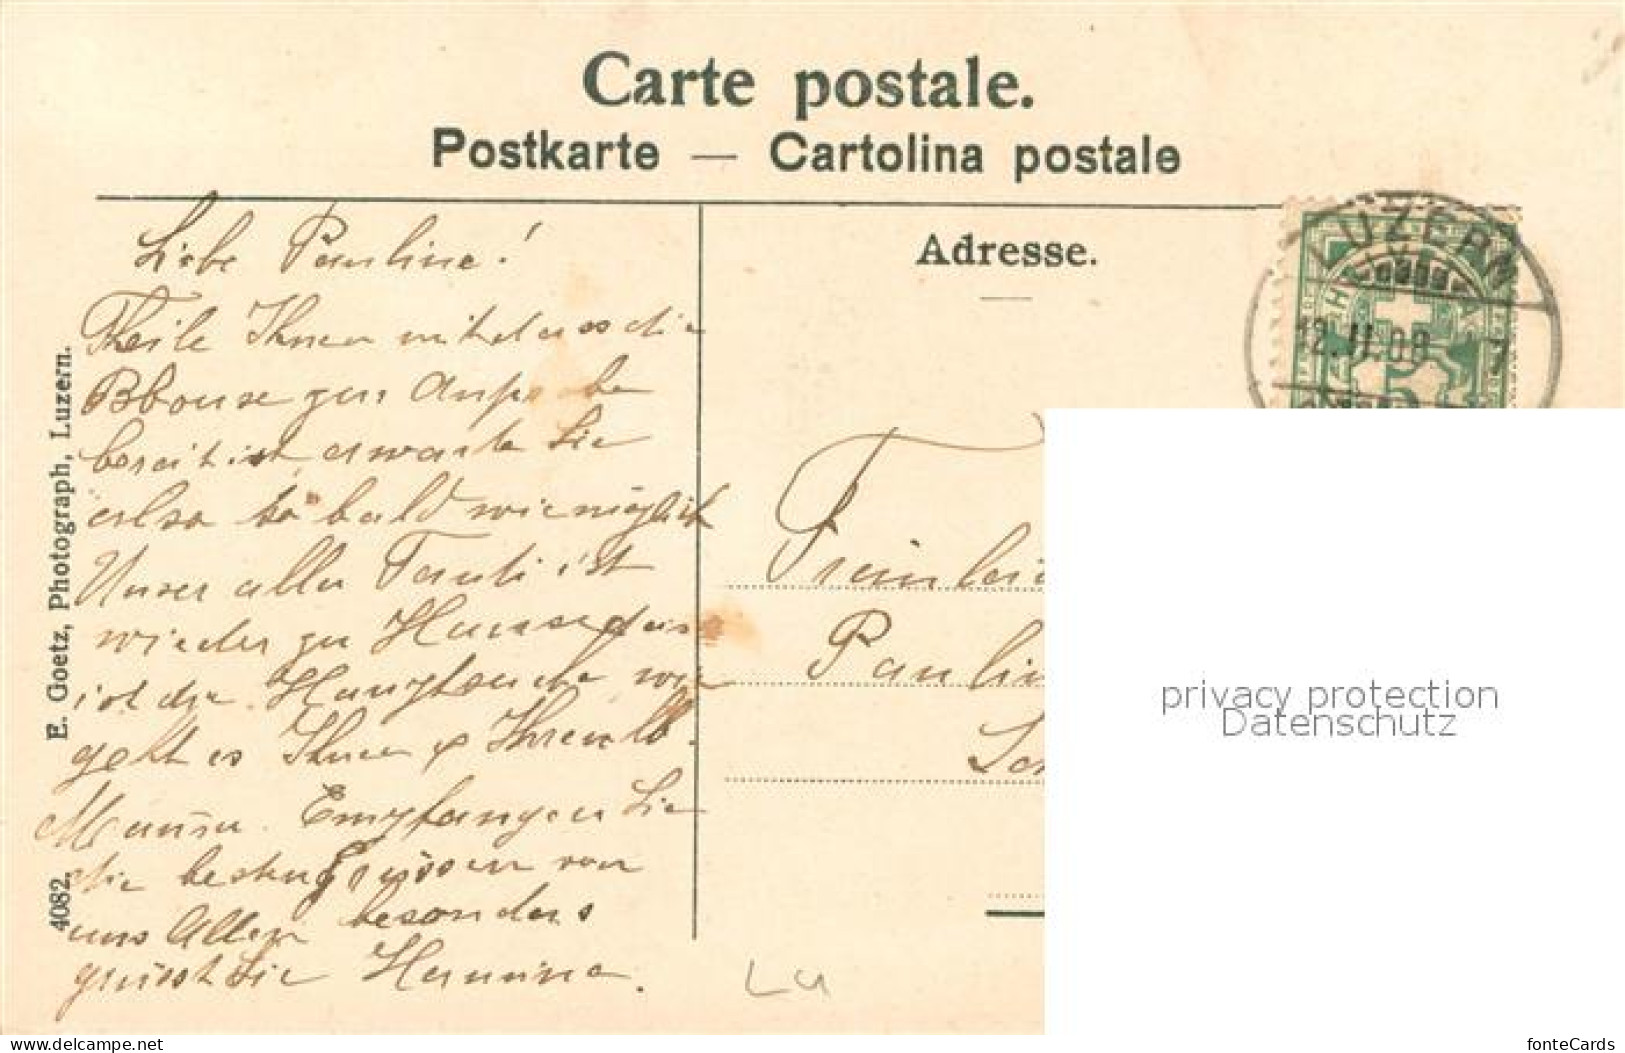 Carte postale.
Postkarte — Cartolina postale
Adresse.
LUZERN
12.II.08
HELVETIA
Liebe Pauline!
Theile Ihnen mit dass die
Blouse zum Anprobe
bereit ist erwarte Sie
also so bald wie möglich
Unser aller Fauli ist
wieder zu Hause
ist die wie
geht es Ihnen & Ihrem lb.
Mann. Empfangen Sie
die besten Grüssen von
uns Allen besonders
grüsst Sie Hermine.
Fräulein
Paulin
Sch
E. Goetz, Photograph, Luzern.
4082.
Lu
privacy protection
Datenschutz
www.delcampe.net
fonteCards